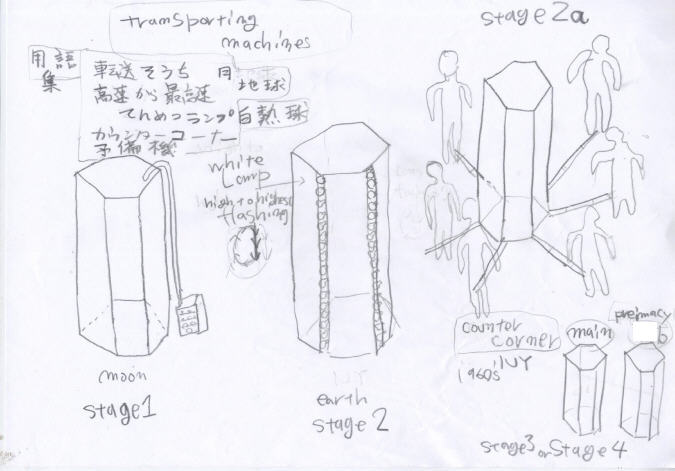 transporting
machines
用語
集
転送そうち 月 地球
高速か最高速
てんめつランプ 白熱球
カウンターコーナー
予備機
stage2a
white
Lamp
high to highest
flashing
moon
stage1
earth
stage 2
counter
corner
1960s' NY
main
stage3 or Stage 4